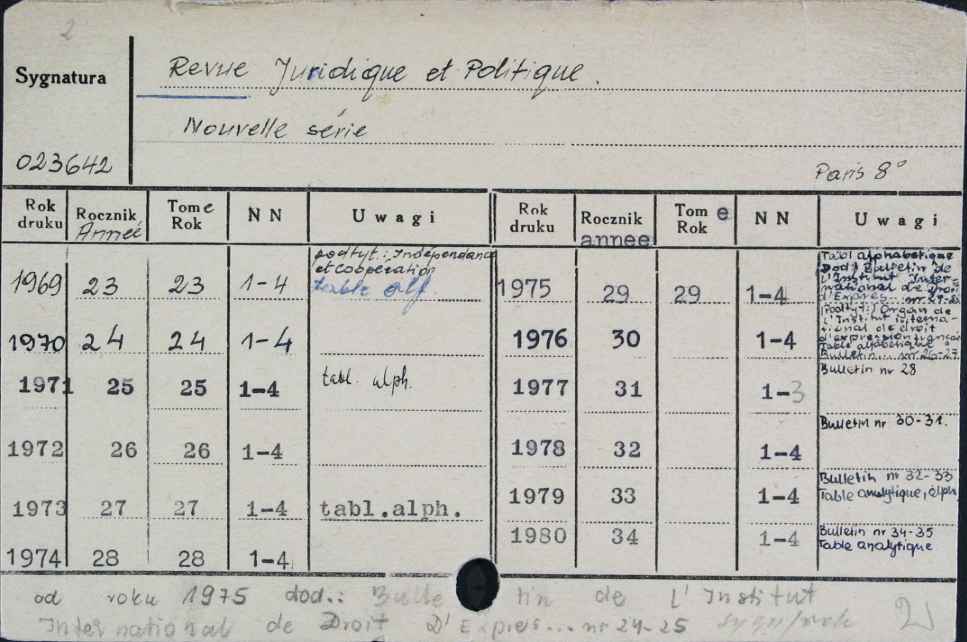 2
Sygnatura
Revue Juridique et Politique.
Nouvelle série
023642
Paris 8°
Rok druku Rocznik Anneé Tome Rok NN Uwagi
1969 23 23 1-4 podtyt.: Indépendance et Coopération table alf.
1970 24 24 1-4
1971 25 25 1-4 tabl. alph.
1972 26 26 1-4
1973 27 27 1-4 tabl.alph.
1974 28 28 1-4
Rok druku Rocznik annee Tom e Rok NN Uwagi
1975 29 29 1-4 Tabl alphabetique
Dod.: Bulletin de
L'Institut Inter-
national de Droit
d'Expres...
1976 30 1-4 (Podtyt.:) Organ de
L'Institut interna-
tional de droit
d'expression
Bulletin... nr 26-27
1977 31 1-3 Bulletin nr 28
1978 32 1-4 Bulletin nr 30-31.
1979 33 1-4 Bulletin nr 32-33
Table analytique, alph
1980 34 1-4 Bulletin nr 34-35
Table analytique
od roku 1975 dod.: Bulletin de L'Institut
International de Droit D'Expres... nr 24-25